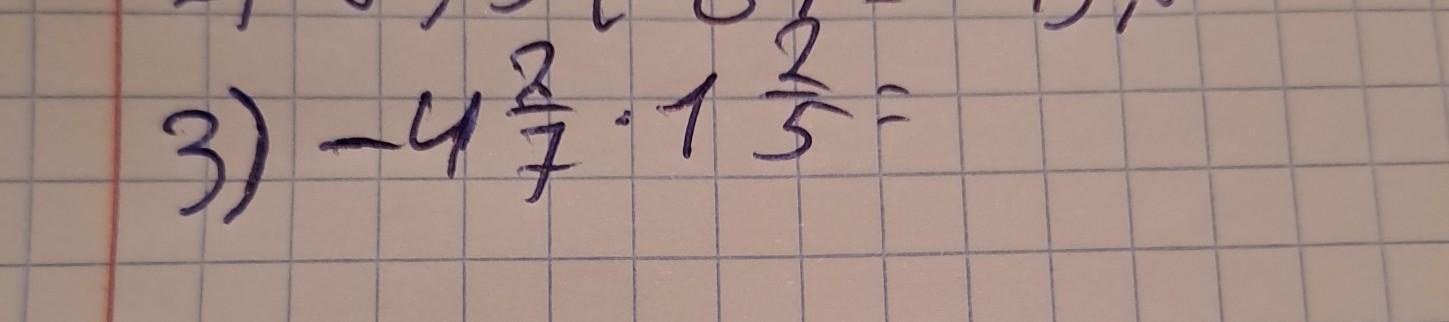 3) -4 2/7 · 1 2/5 =